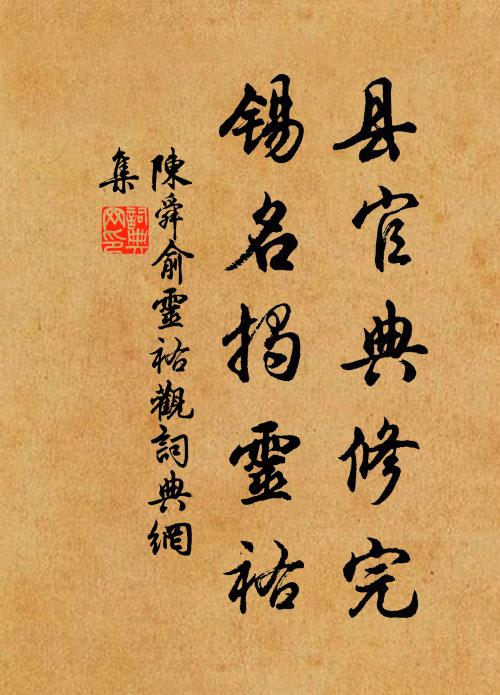 县官典修完
锡名揭靈祐
陳舜俞靈祐觀詞典網
集
詞典网印